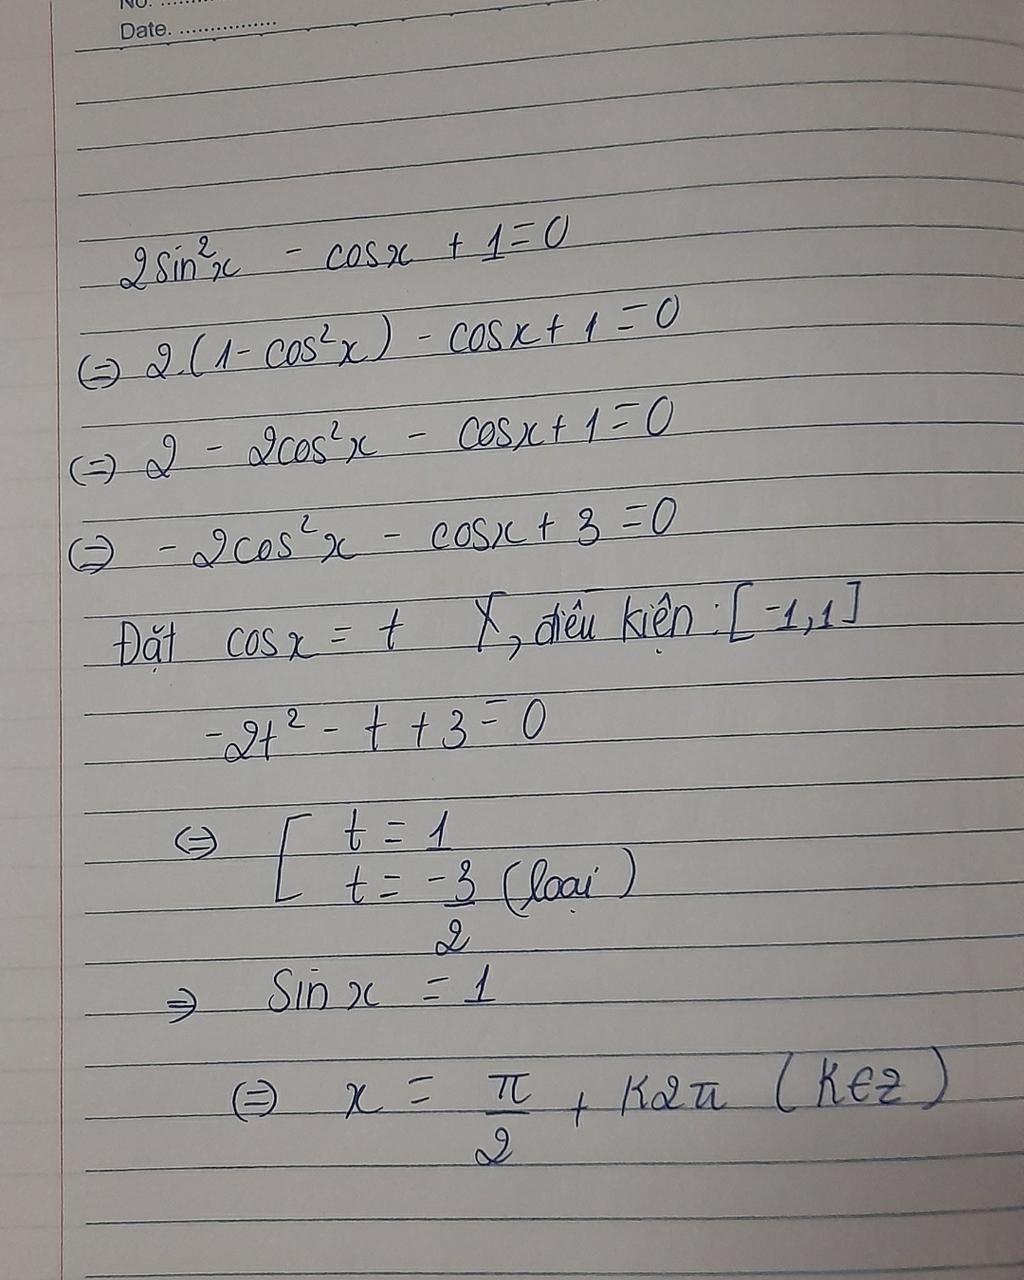 No. ........
Date. ................
2sin²x - cosx + 1 = 0
(=) 2.(1 - cos²x) - cosx + 1 = 0
(=) 2 - 2cos²x - cosx + 1 = 0
(=) - 2cos²x - cosx + 3 = 0
Đặt cosx = t , điều kiện : [-1,1]
-2t² - t + 3 = 0
(=) [ t = 1
t = -3/2 (loại)
=> Sin x = 1
(=) x = π/2 + K2π (K∈z)